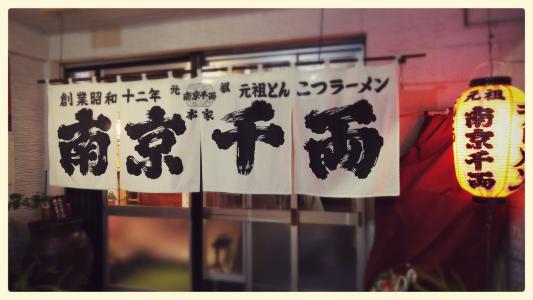 創業昭和十二年 元祖 元祖とんこつラーメン
南京千両
本家
南京千両
元祖
南京千両
ラーメン